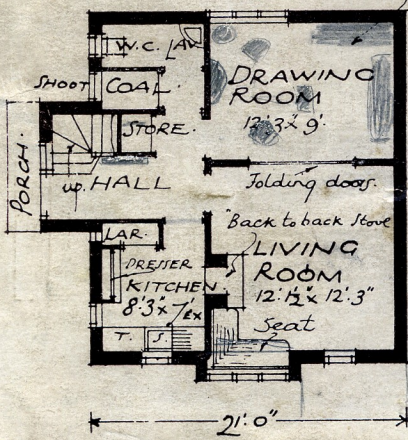 W.C. LAV.
SHOOT
COAL.
STORE.
DRAWING
ROOM
12'.3"x 9'.
PORCH.
up. HALL
Folding doors.
Back to back Stove
LAR.
DRESSER
KITCHEN.
8'.3"x 7'.
LIVING
ROOM
12'.1½"x 12'.3"
Seat
T. S.
21'.0"